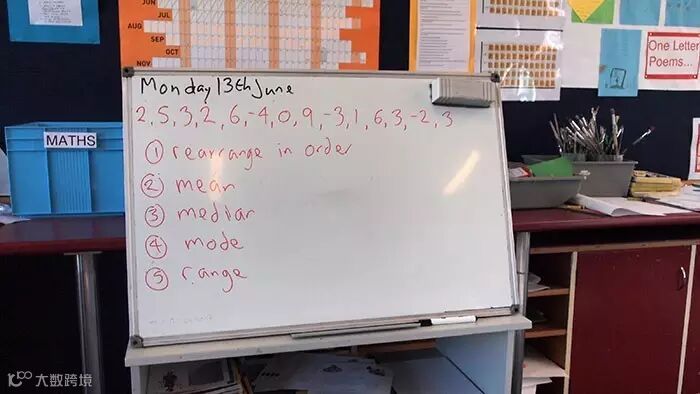 JUN
JUL
AUG
SEP
OCT
NOV
One Letter
Poems...
Monday 13th June
2, 5, 3, 2, 6, -4, 0, 9, -3, 1, 6, 3, -2, 3
MATHS
① rearrange in order
② mean
③ median
④ mode
⑤ range
大数跨境